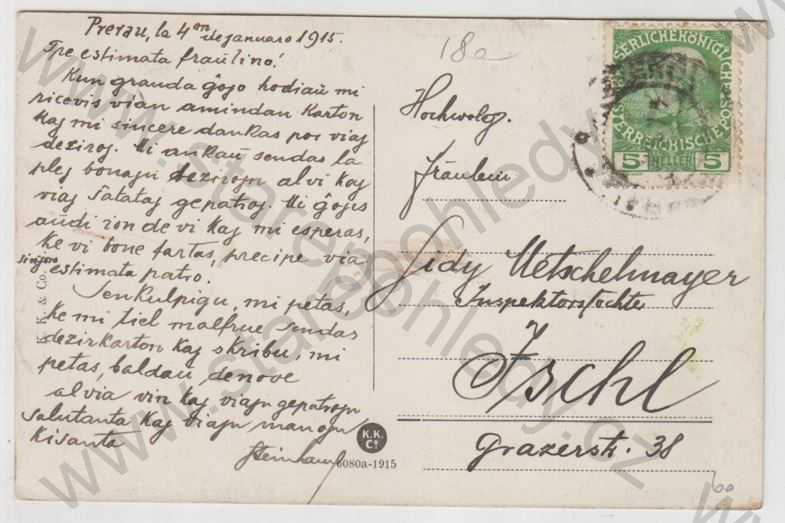 Prerau, la 4an de januaro 1915.
Tre estimata fraŭlino!
Kun granda ĝojo hodiaŭ mi
ricevis vian amindan karton
kaj mi sincere dankas por viaj
deziroj. Mi ankaŭ sendas la
plej bonajn dezirojn al vi kaj
viaj ŝatataj gepatroj. Mi ĝojis
aŭdi ion de vi kaj mi esperas,
ke vi bone fartas, precipe via
estimata sinjoro patro!
Senkulpigu, mi petas,
ke mi tiel malfrue sendas
dezirkarton kaj skribu, mi
petas, baldaŭ denove
al via vin kaj viajn gepatrojn
salutanta kaj viajn manojn
kisanta
18a
Hochwolg.
Fräulein
Lidy Metschelmayer
Inspektorstochter
Ischl
Grazerstr. 38
KAISERLICHE KÖNIGLICHE
ÖSTERREICHISCHE
5 HELLER 5
K. K. & Co.
K.K.
Co
6080a-1915
www.starepohledy.cz